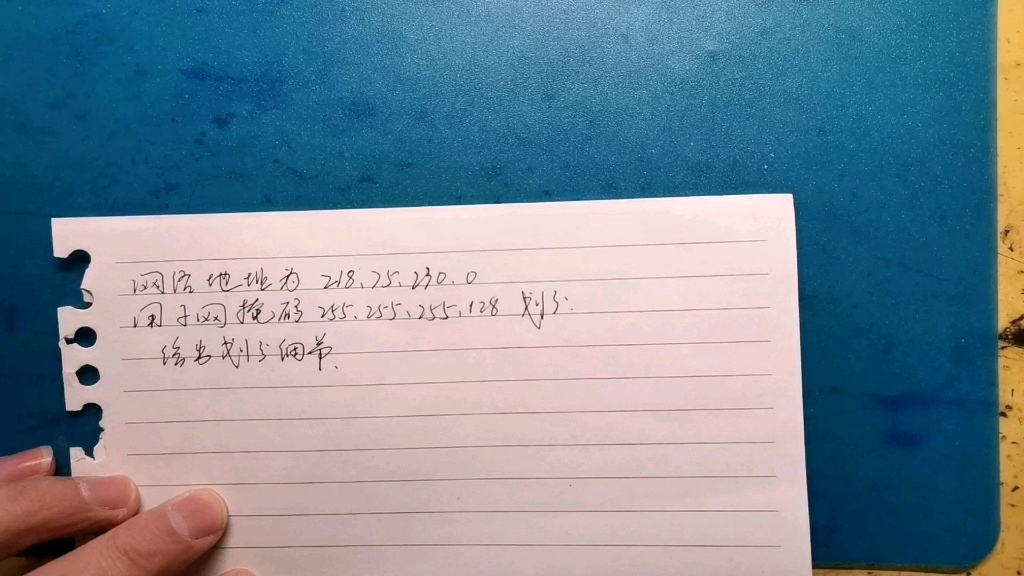 网络地址为 218.75.230.0
用子网掩码 255.255.255.128 划分:
给出划分细节.